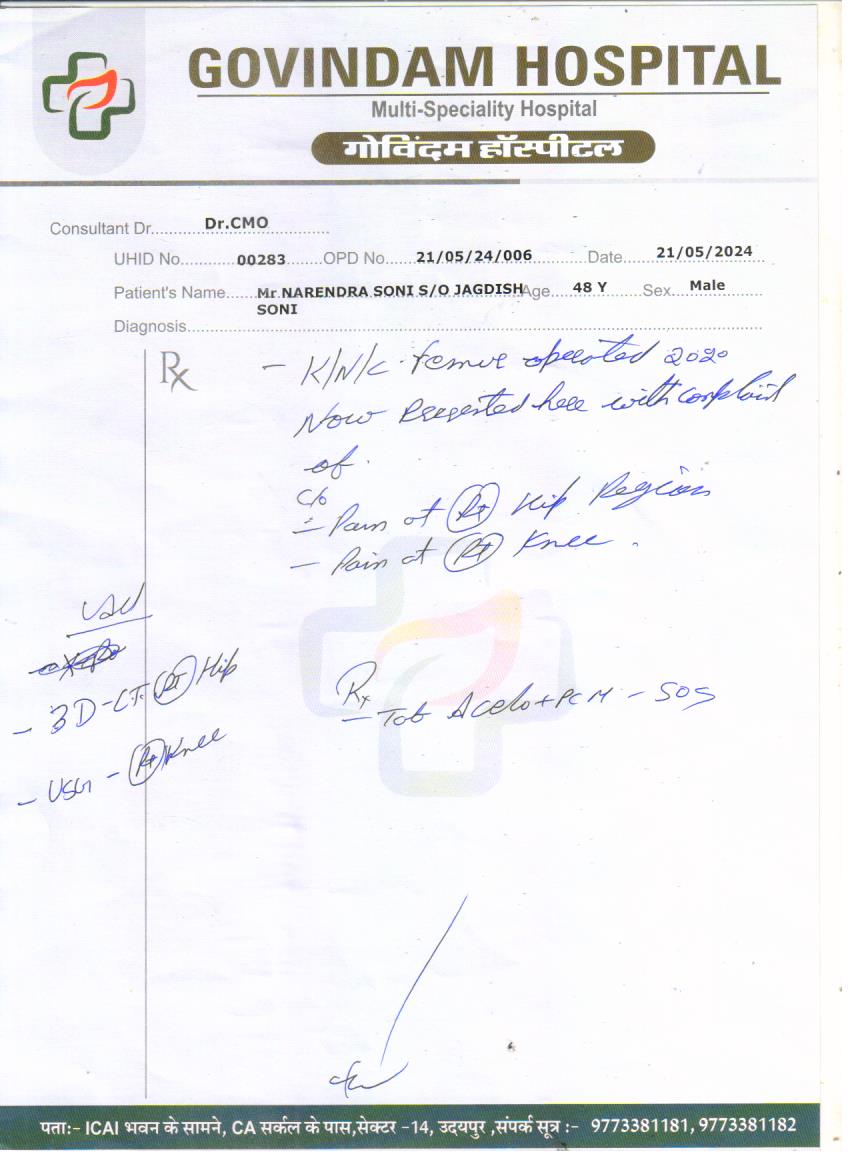 GOVINDAM HOSPITAL
Multi-Speciality Hospital
गोविंदम हॉस्पीटल
Consultant Dr. Dr.CMO
UHID No. 00283 OPD No. 21/05/24/006 Date 21/05/2024
Patient's Name Mr NARENDRA SONI S/O JAGDISH SONI Age 48 Y Sex Male
Diagnosis
Rx
- K/N/C femur operated 2020
Now Presented here with complaint
of.
C/o
- Pain at Rt Hip Region
- Pain at Rt Knee.
- 3D-CT. Rt Hip
- USG - Rt Knee
Rx
- Tab Aceclo+PCM - SOS
पता:- ICAI भवन के सामने, CA सर्कल के पास,सेक्टर -14, उदयपुर ,संपर्क सूत्र :- 9773381181, 9773381182